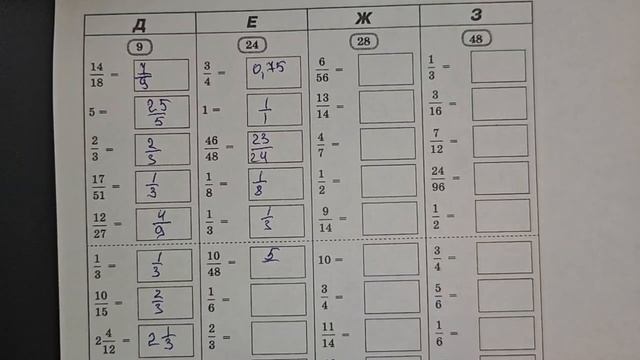 Д Е Ж З
9 24 28 48
14/18 = 7/9 3/4 = 0,75 6/56 = 1/3 =
5 = 25/5 1 = 1/1 13/14 = 3/16 =
2/3 = 2/3 46/48 = 23/24 4/7 = 7/12 =
17/51 = 1/3 1/8 = 1/8 1/2 = 24/96 =
12/27 = 4/9 1/3 = 1/3 9/14 = 1/2 =
1/3 = 1/3 10/48 = 5 10 = 3/4 =
10/15 = 2/3 1/6 = 3/4 = 5/6 =
2 4/12 = 2 1/3 2/3 = 11/14 = 1/6 =